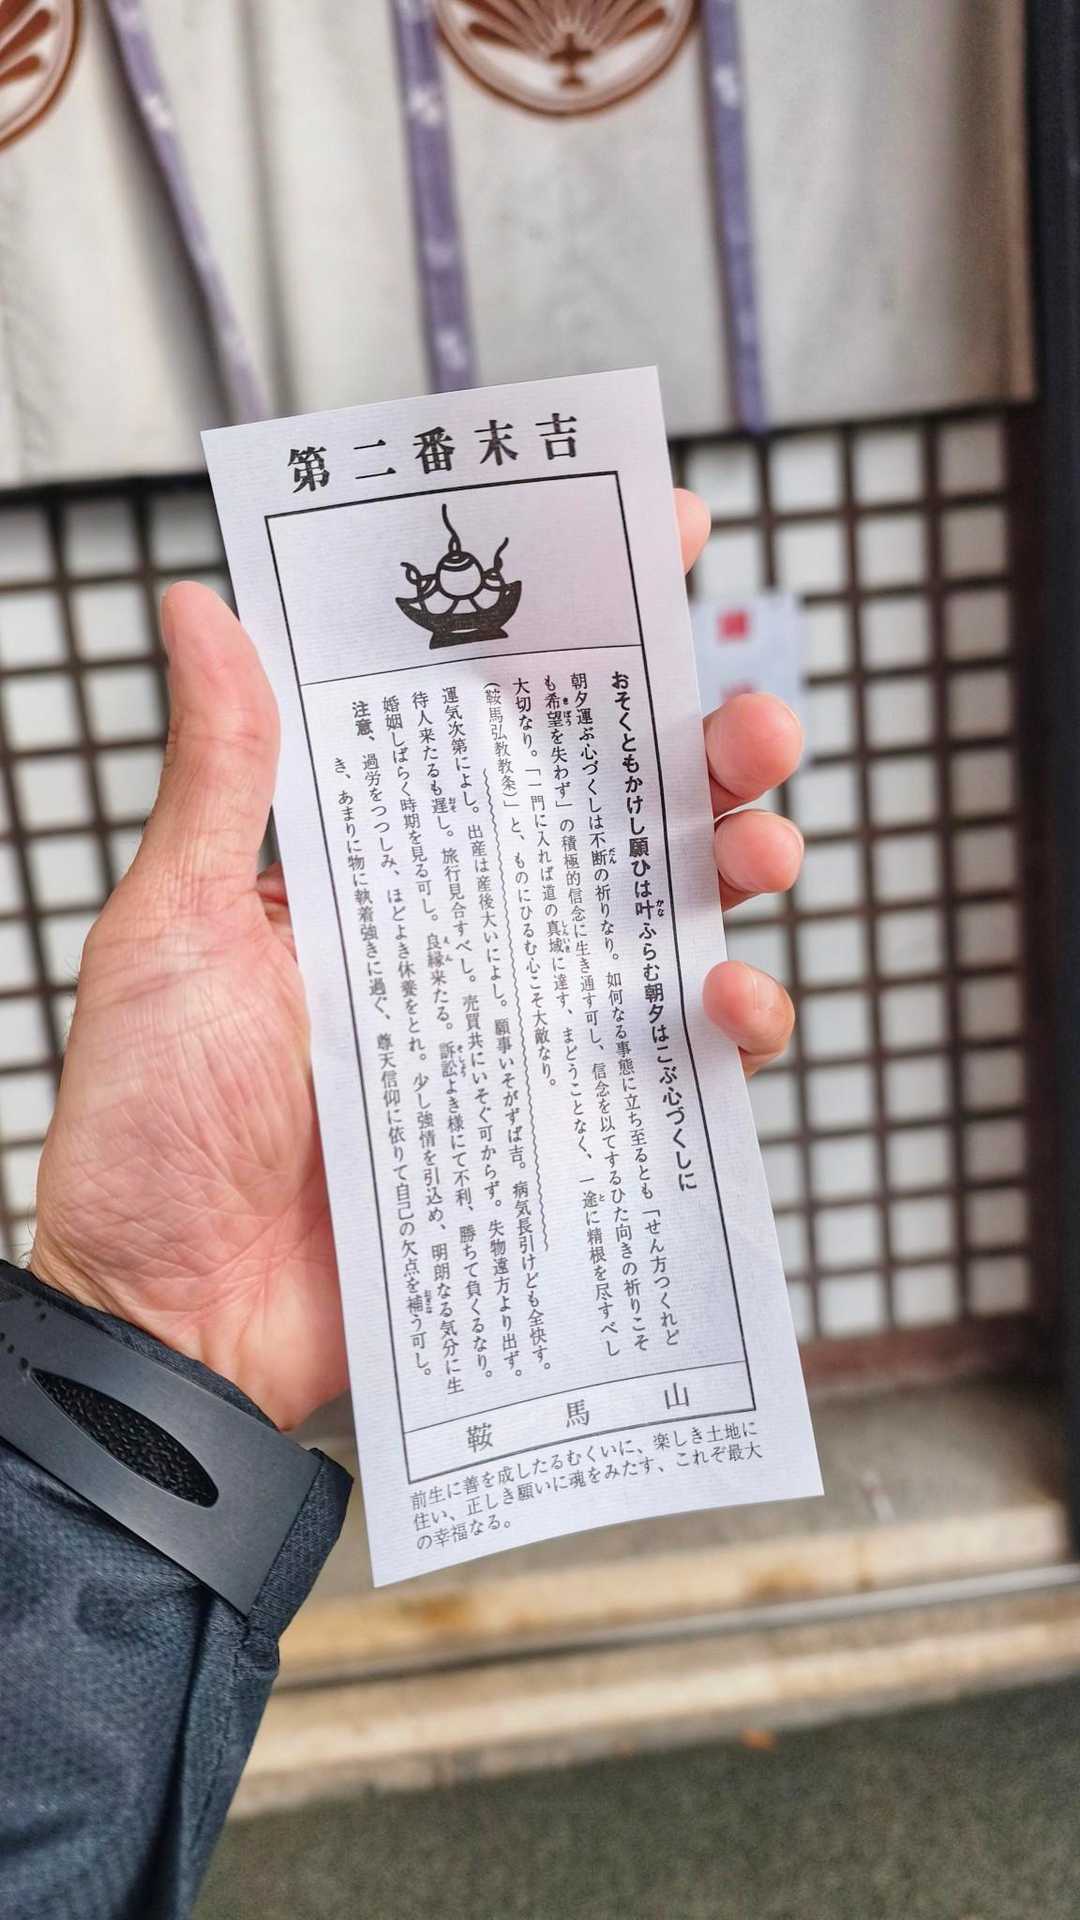 第二番末吉
おそくともかけし願ひは叶ふらむ朝夕はこぶ心づくしに
朝夕運ぶ心づくしは不断の祈りなり。如何なる事態に立ち至るとも「せん方つくれど
も希望を失わず」の積極的信念に生き通す可し、信念を以てするひた向きの祈りこそ
大切なり。「一門に入れば道の真域に達す、まどうことなく、一途に精根を尽すべし
(鞍馬弘教教条)」と、ものにひるむ心こそ大敵なり。
運気次第によし。出産は産後大いによし。願事いそがずば吉。病気長引けども全快す。
待人来たるも遅し。旅行見合すべし。売買共にいそぐ可からず。失物遠方より出ず。
婚姻しばらく時期を見る可し。良縁来たる。訴訟よき様にて不利、勝ちて負くるなり。
注意、過労をつつしみ、ほどよき休養をとれ。少し強情を引込め、明朗なる気分に生
き、あまりに物に執着強きに過ぐ、尊天信仰に依りて自己の欠点を補う可し。
鞍馬山
前生に善を成したるむくいに、楽しき土地に
住い、正しき願いに魂をみたす、これぞ最大
の幸福なる。